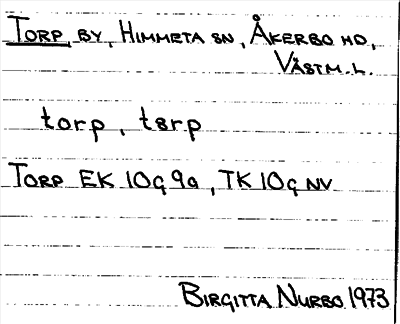 TORP, BY, HIMMETA SN, ÅKERBO HD,
VÄSTM. L.
torp, tɵrp
TORP EK 10G 9a, TK 10G NV
BIRGITTA NURBO 1973